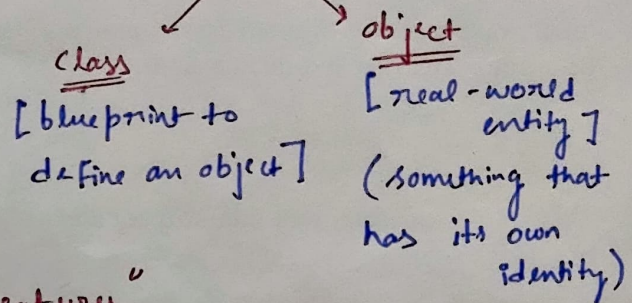 class
[blueprint to
define an object]
object
[real-world
entity]
(something that
has its own
identity)